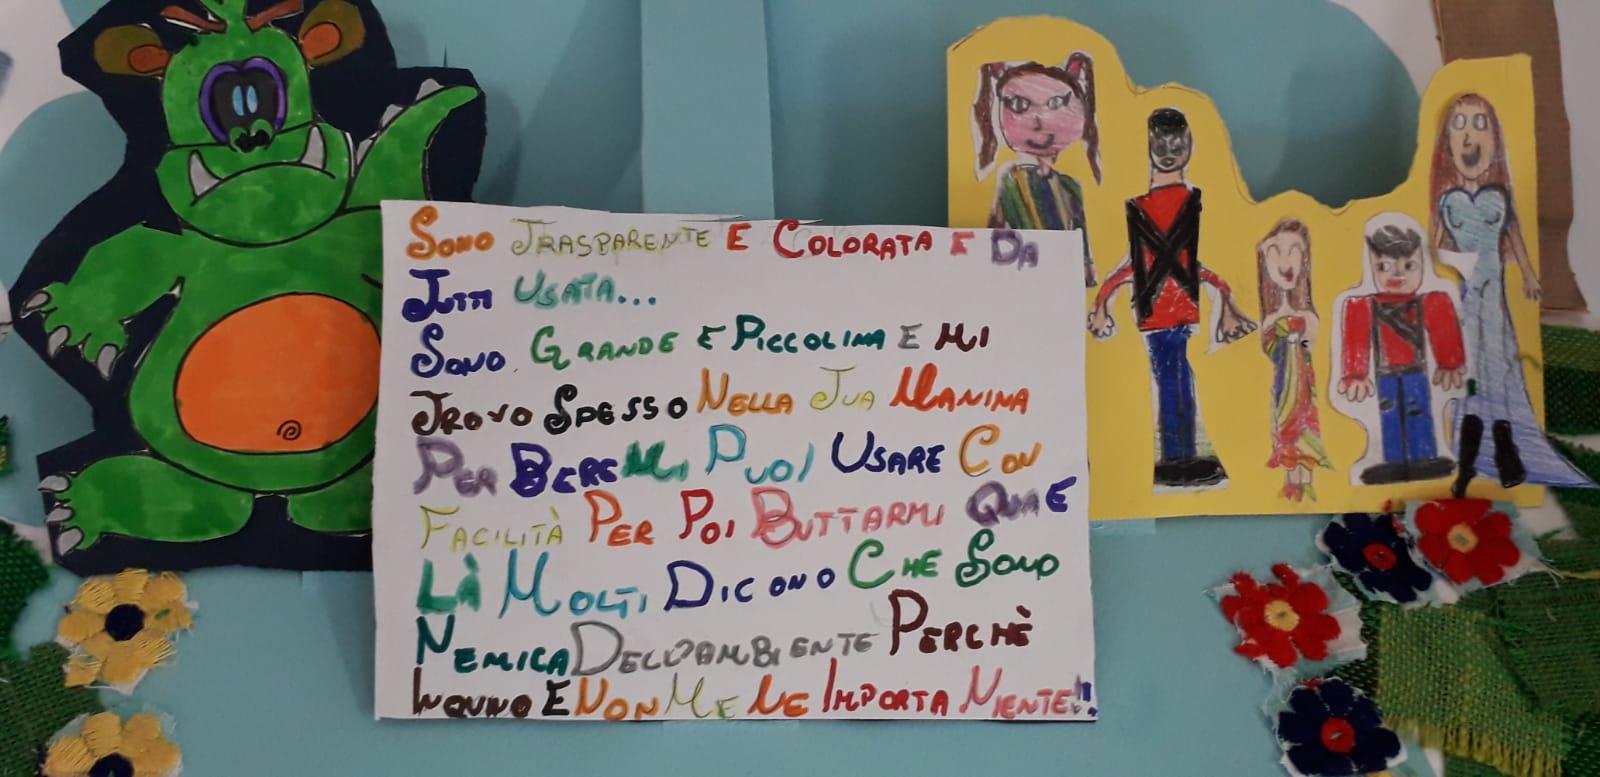 SONO TRASPARENTE E COLORATA E DA
TUTTI USATA...
SONO GRANDE E PICCOLINA E MI
TROVO SPESSO NELLA TUA MANINA
PER BERE MI PUOI USARE CON
FACILITÀ PER POI BUTTARMI QUA E
LÀ MOLTI DICONO CHE SONO
NEMICA DELL'AMBIENTE PERCHÈ
INQUINO E NON ME NE IMPORTA NIENTE!!